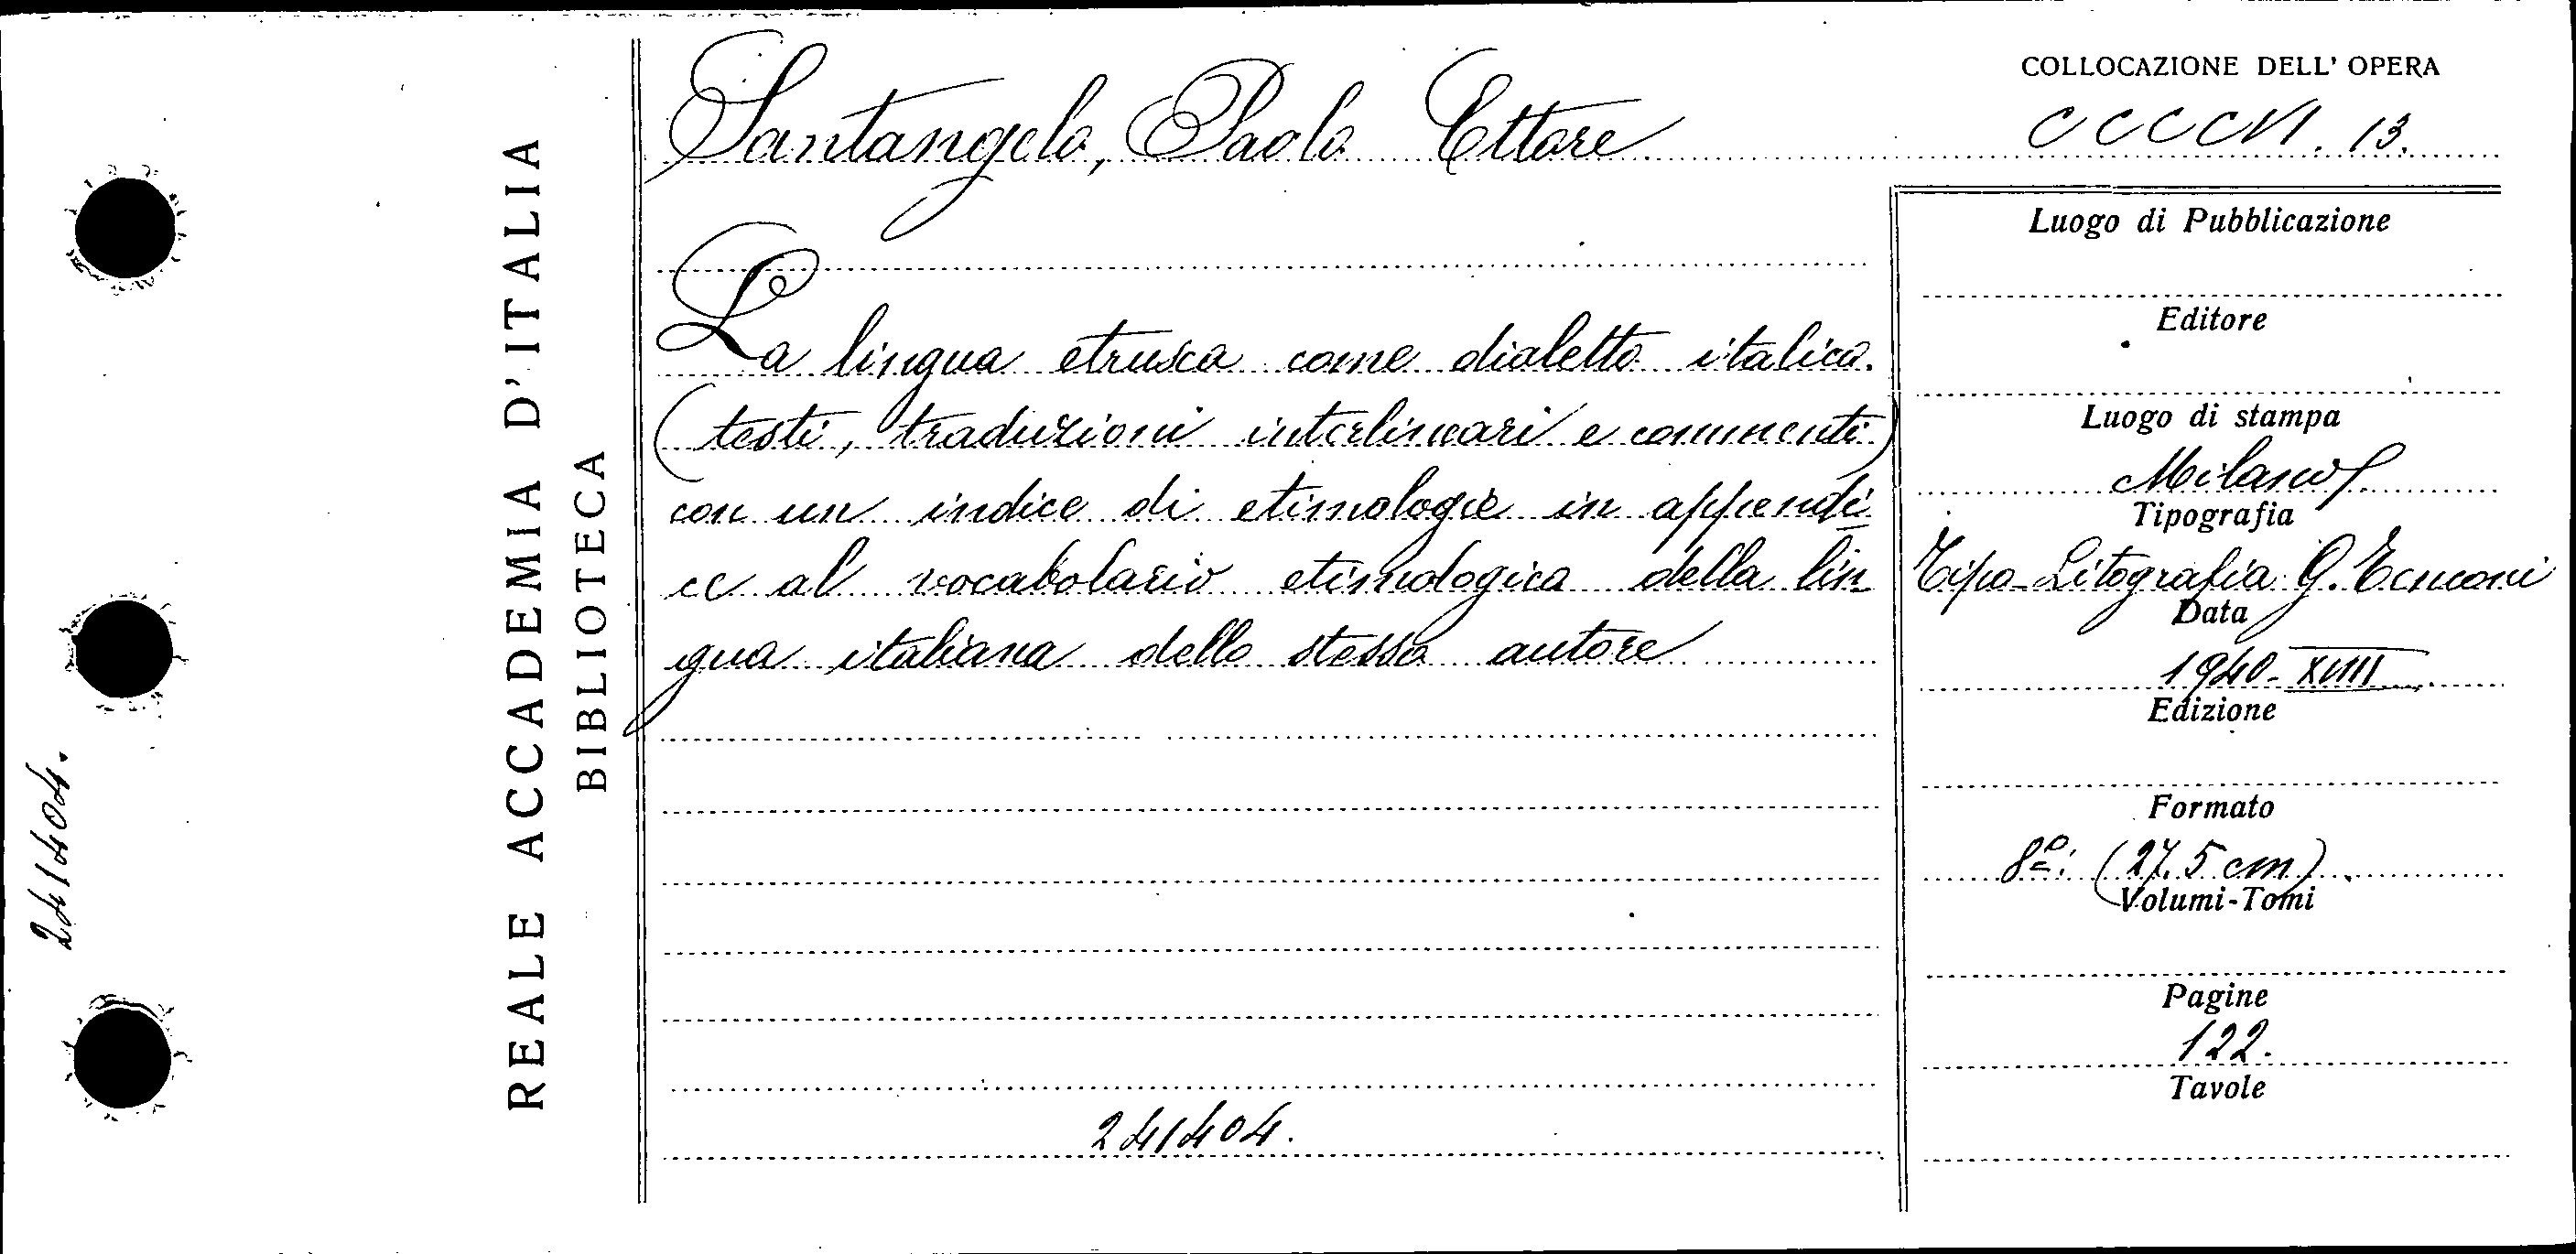 241404.
REALE ACCADEMIA D'ITALIA
BIBLIOTECA
Santangelo, Paolo Ettore
La lingua etrusca come dialetto italico.
(testi, traduzioni interlineari e commenti)
con un indice di etimologie in appendi
ce al vocabolario etimologico della lin
gua italiana dello stesso autore
241404.
COLLOCAZIONE DELL' OPERA
CCCCVI. 13.
Luogo di Pubblicazione
Editore
Luogo di stampa
Milano
Tipografia
Tipo-Litografia G.
Data
1940-XVIII
Edizione
Formato
8º: (27.5 cm)
Volumi-Tomi
Pagine
122.
Tavole